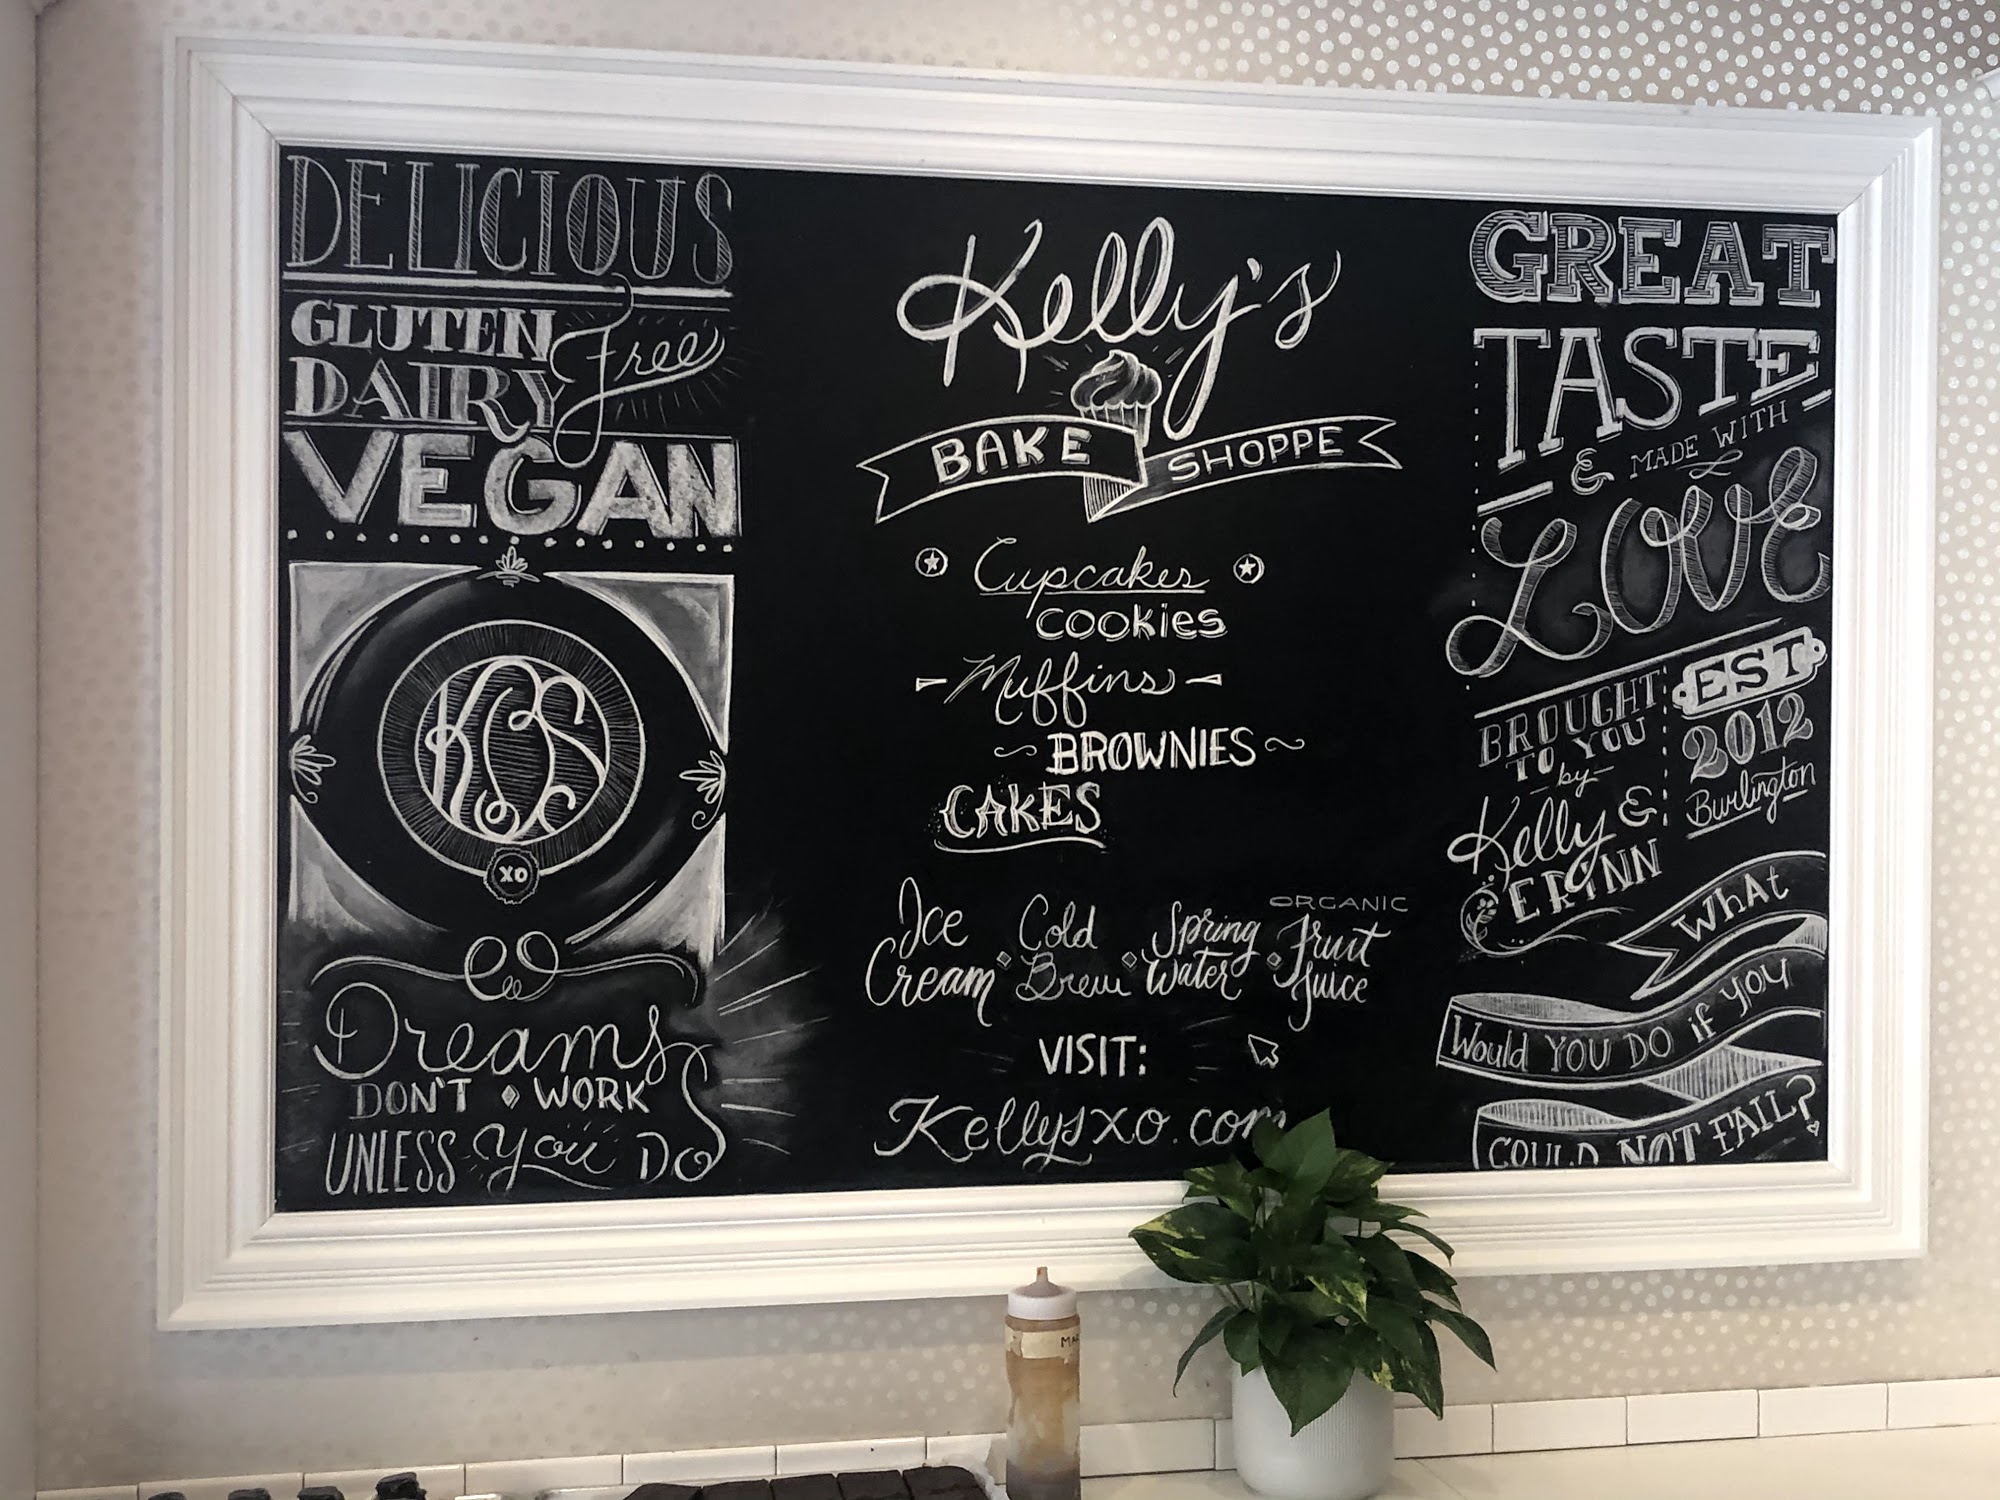 DELICIOUS
GLUTEN
DAIRY
Free
VEGAN
KBS
XO
Dreams
DON'T WORK
UNLESS you DO
Kelly's
BAKE SHOPPE
Cupcakes
cookies
Muffins
BROWNIES
CAKES
Ice Cream
Cold Brew
Spring Water
ORGANIC
Fruit Juice
VISIT:
Kellysxo.com
GREAT
TASTE
& MADE WITH
LOVE
BROUGHT
TO YOU
by
Kelly &
ERINN
EST
2012
Burlington
What
Would YOU DO if YOU
COULD NOT FAIL?